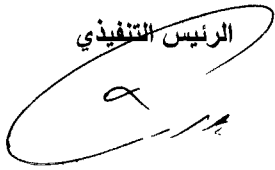 الرئيس التنفيذي